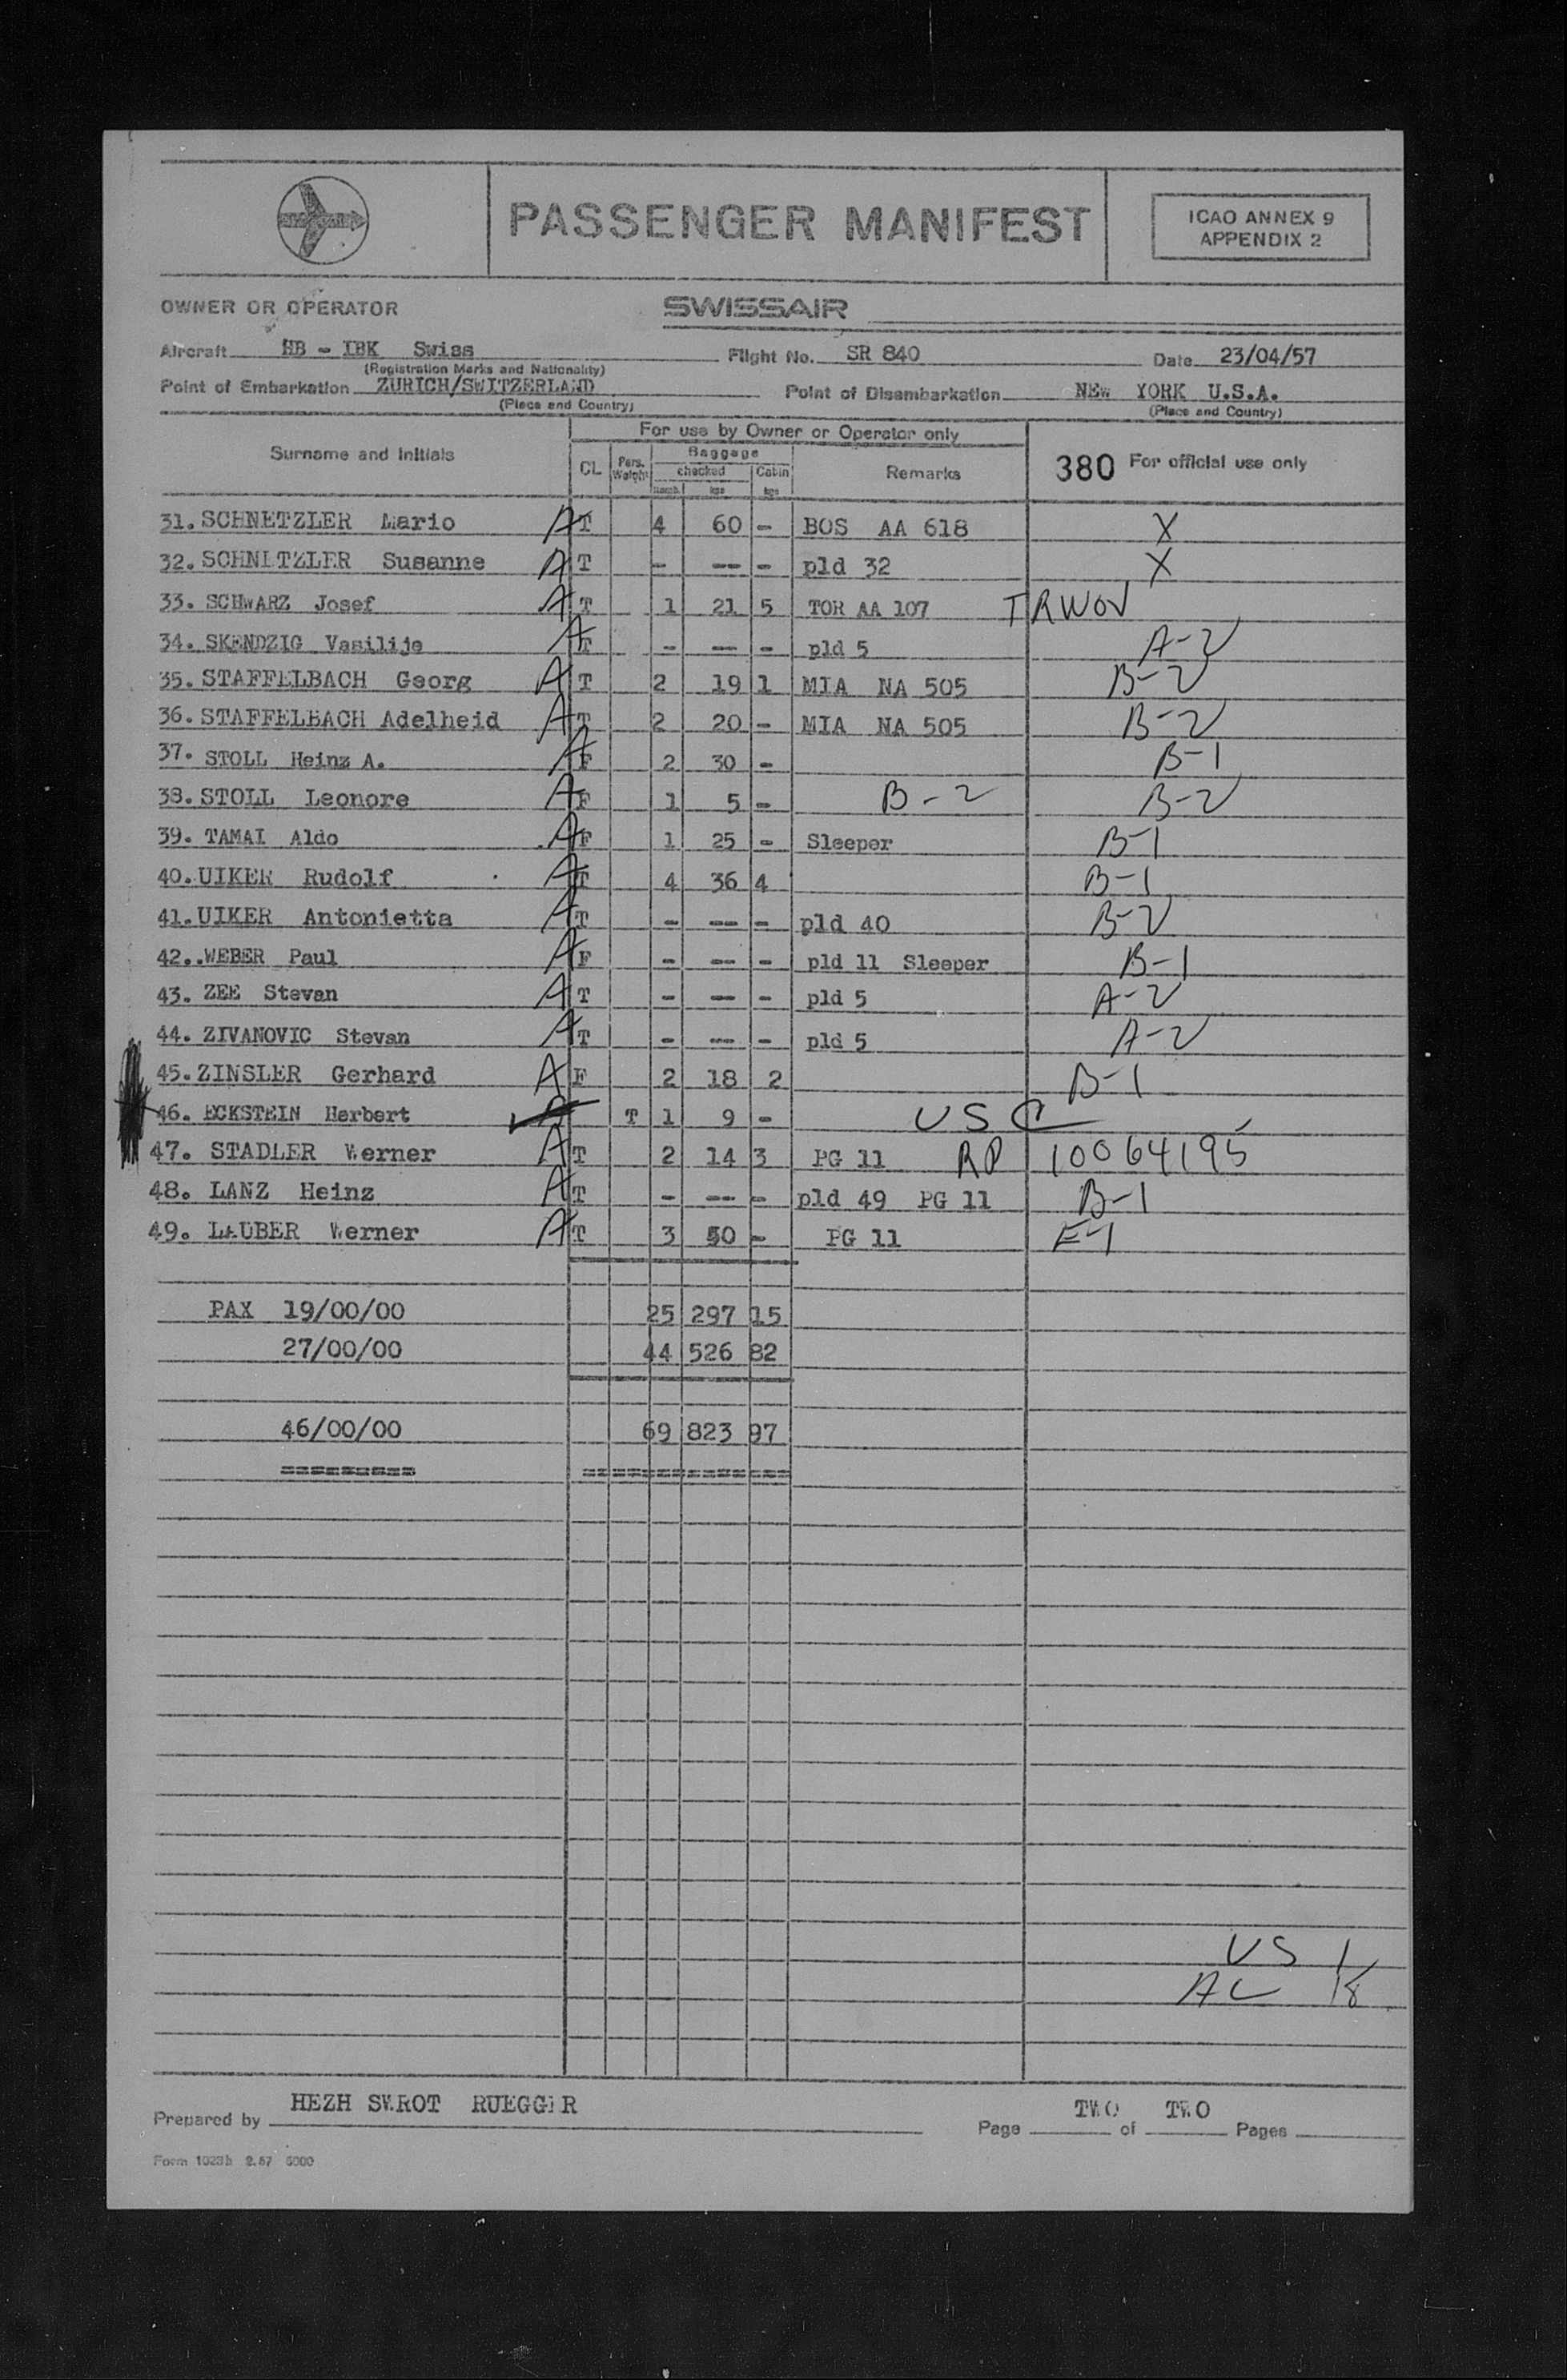 SWISSAIR
PASSENGER MANIFEST
ICAO ANNEX 9
APPENDIX 2
OWNER OR OPERATOR SWISSAIR
Aircraft HB - IBK Swiss Flight No. SR 840 Date 23/04/57
(Registration Marks and Nationality)
Point of Embarkation ZURICH/SWITZERLAND Point of Disembarkation NEW YORK U.S.A.
(Place and Country) (Place and Country)
For use by Owner or Operator only
Surname and Initials CL Pers. Weight Baggage checked Numb. kgs Cabin kgs Remarks 380 For official use only
31. SCHNETZLER Mario A T 4 60 - BOS AA 618 X
32. SCHNETZLER Susanne A T - --- - pld 32 X
33. SCHWARZ Josef A T 1 21 5 TOR AA 107 TRWOV
34. SKENDZIG Vasilije A T - --- - pld 5 A-2
35. STAFFELBACH Georg A T 2 19 1 MIA NA 505 B-2
36. STAFFELBACH Adelheid A T 2 20 - MIA NA 505 B-2
37. STOLL Heinz A. A F 2 30 - B-1
38. STOLL Leonore A F 1 5 - B-2 B-2
39. TAMAI Aldo A F 1 25 - Sleeper B-1
40. UIKER Rudolf A T 4 36 4 B-1
41. UIKER Antonietta A T - --- - pld 40 B-2
42.. WEBER Paul A F - --- - pld 11 Sleeper B-1
43. ZEE Stevan A T - --- - pld 5 A-2
44. ZIVANOVIC Stevan A T - --- - pld 5 A-2
45. ZINSLER Gerhard A F 2 18 2 B-1
46. ECKSTEIN Herbert T 1 9 - USC
47. STADLER Werner A T 2 14 3 PG 11 RP 10064195
48. LANZ Heinz A T - --- - pld 49 PG 11 B-1
49. LAUBER Werner A T 3 50 - PG 11 E-1
PAX 19/00/00 25 297 15
27/00/00 44 526 82
46/00/00 69 823 97
========= == ==============
US 1
AL 18
Prepared by HEZH SWROT RUEGGER Page TWO of TWO Pages
Form 1023h 2.57 5000